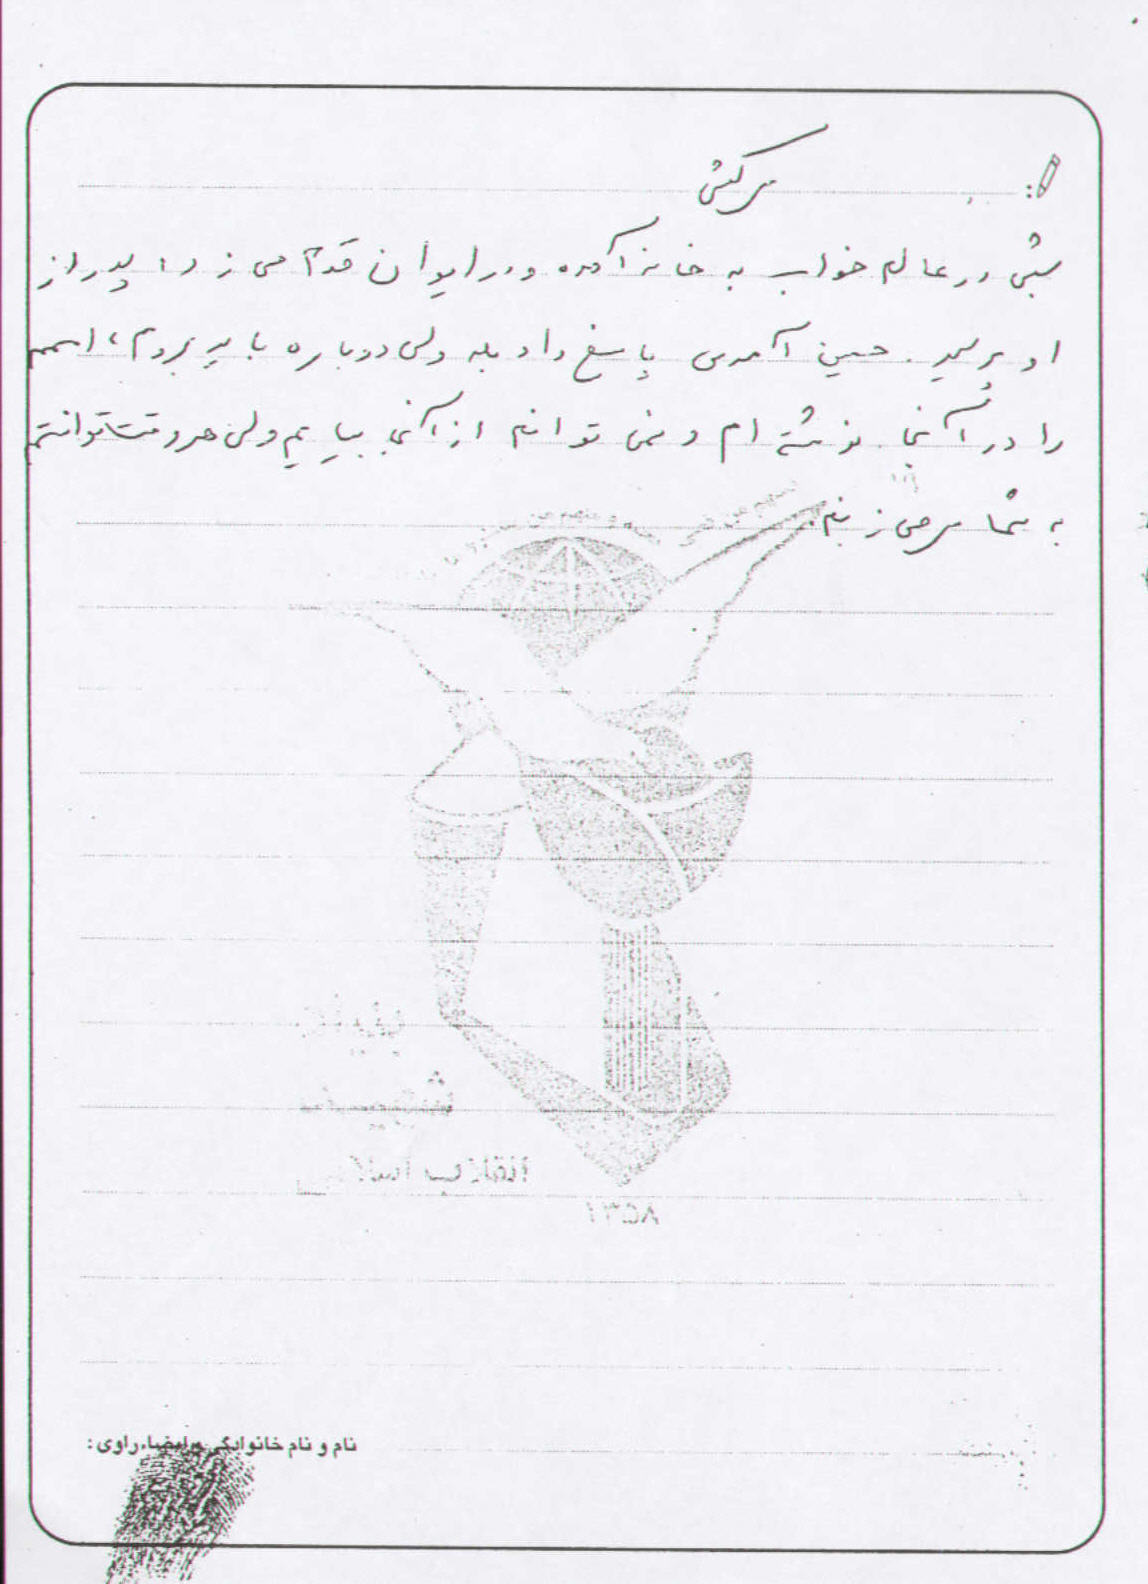 سرکشی
شبی در عالم خواب به خانه آمده و در ایوان قدم می زد، پدر از
او پرسید. حسین آمدی پاسخ داد بله ولی دوباره باید بروم، اسمم
را در آنجا نوشته ام و نمی توانم از آنجا بیایم ولی هر وقت توانستم
به شما سر می زنم.
بنیاد
شهید
انقلاب اسلامی
۱۳۵۸
نام و نام خانوادگی و امضاء راوی: